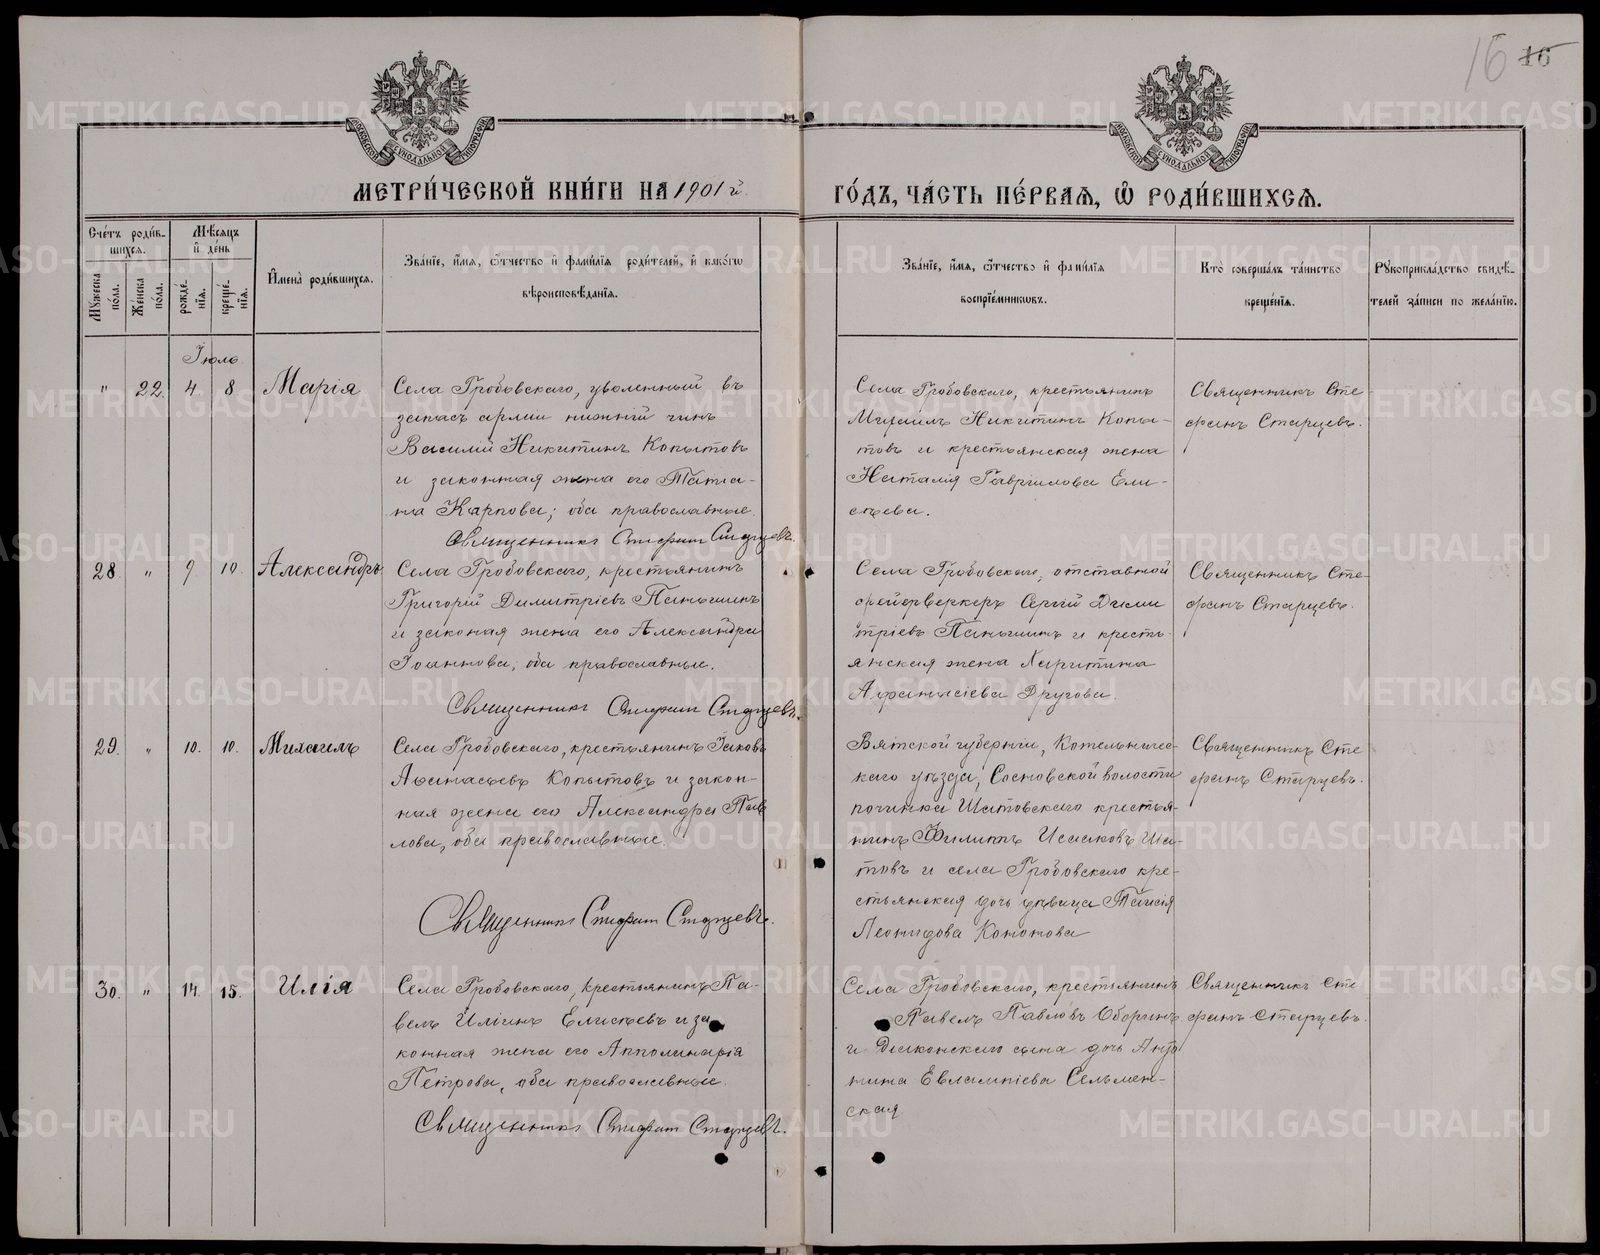 16 16
МЕТРИ́ЧЕСКОЙ КНИ́ГИ НА 1901 й.
ГО́ДЪ, ЧА́СТЬ ПЕ́РВАЯ, Ѽ РОДИ́ВШИХСЯ.
Сче́тъ роди́вшихся.
Му́жеска по́ла.
Же́нска по́ла.
Мѣ́сяцъ и де́нь
рожде́нїя.
креще́нїя.
И҆мена̀ роди́вшихся.
Зва́нїе, и҆́мя, ѻ҆́тчество и҆ фами́лїя роди́телей, и҆ како́гѡ
вѣроисповѣ́данїя.
Зва́нїе, и҆́мя, ѻ҆́тчество и҆ фами́лїя
воспрїе́мниковъ.
Кто̀ соверша́лъ та́инство
креще́нїя.
Рꙋкоприкла́дство свидѣ́-
телей за́писи по жела́нїю.
Іюль
" 22. 4. 8 Марія
Села Гробовскаго, уволенный въ
запасъ арміи нижній чинъ
Василій Никитинъ Копытовъ
и законная жена его Татіа-
на Карпова; оба православные.
Священникъ Стефанъ Старцевъ.
Села Гробовскаго, крестьянинъ
Михаилъ Никитинъ Копы-
товъ и крестьянская жена
Наталія Гавріилова Ели-
сѣева.
Священникъ Сте
фанъ Старцевъ.
28. " 9. 10. Александръ
Села Гробовскаго, крестьянинъ
Григорій Димитріевъ Паньшинъ
и законая жена его Александра
Іоаннова, оба православные.
Священникъ Стефанъ Старцевъ.
Села Гробовскаго, отставной
фейерверкеръ Сергій Дими
тріевъ Паньшинъ и кресть-
янская жена Харитина
Афанасіева Другова.
Священникъ Сте-
фанъ Старцевъ.
29. " 10. 10. Михаилъ
Села Гробовскаго, крестьянинъ Іаковъ
Аѳанасьевъ Копытовъ и закон-
ная жена его Александра Пав
лова, оба православные.
Священникъ Стефанъ Старцевъ.
Вятской губерніи, Котельничес-
каго уѣзда, Сосновской волости
починка Шатовскаго крестья-
нинъ Филиппъ Исааковъ Ша-
товъ и села Гробовскаго кре-
стьянская дочь дѣвица Таисія
Леонидова Кононова
Священникъ Сте
фанъ Старцевъ.
30. " 14. 15. Илія
Села Гробовскаго, крестьянинъ Па-
велъ Иліинъ Елисѣевъ и за
конная жена его Апполинарія
Петрова, оба православные.
Священникъ Стефанъ Старцевъ.
Села Гробовскаго, крестьянинъ
Павелъ Павловъ Оборинъ
и Діаконскаго сына дочь Анто
нина Евлампіева Сельмен-
ская
Священникъ Сте
фанъ Старцевъ.
METRIKI.GASO-URAL.RU